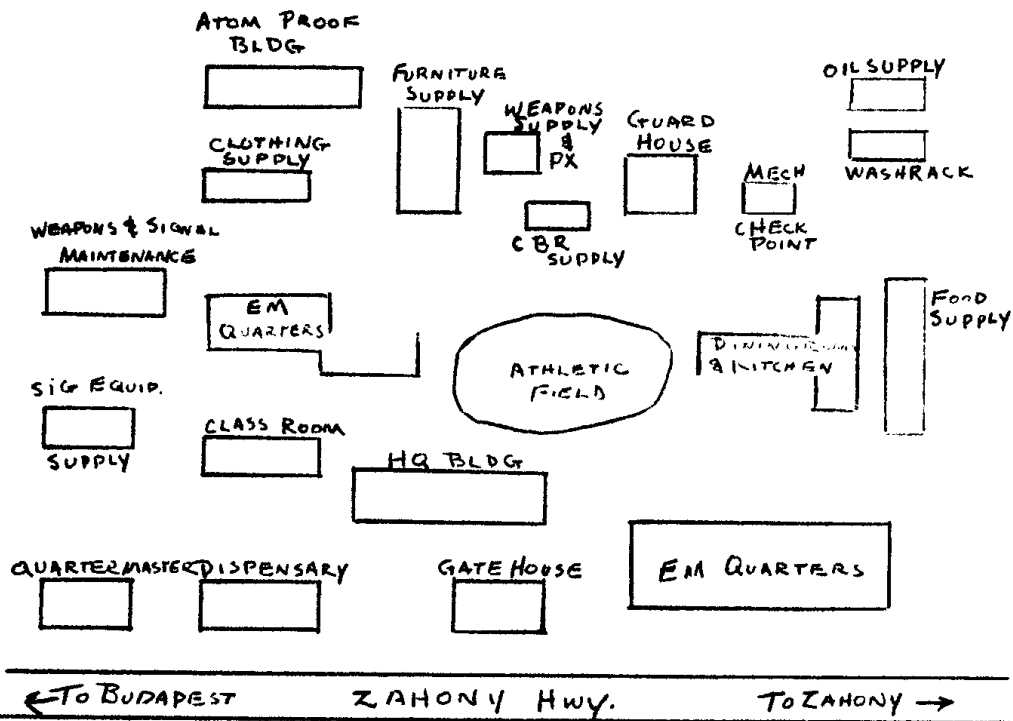 ATOM PROOF
BLDG
FURNITURE
SUPPLY
OIL SUPPLY
WEAPONS
SUPPLY
&
PX
GUARD
HOUSE
CLOTHING
SUPPLY
MECH
CHECK
POINT
WASHRACK
WEAPONS & SIGNAL
MAINTENANCE
CBR
SUPPLY
EM
QUARTERS
FOOD
SUPPLY
DINING ROOM
& KITCHEN
ATHLETIC
FIELD
SIG EQUIP.
SUPPLY
CLASS ROOM
HQ BLDG
QUARTERMASTER
DISPENSARY
GATE HOUSE
EM QUARTERS
← TO BUDAPEST
ZAHONY HWY.
TO ZAHONY →